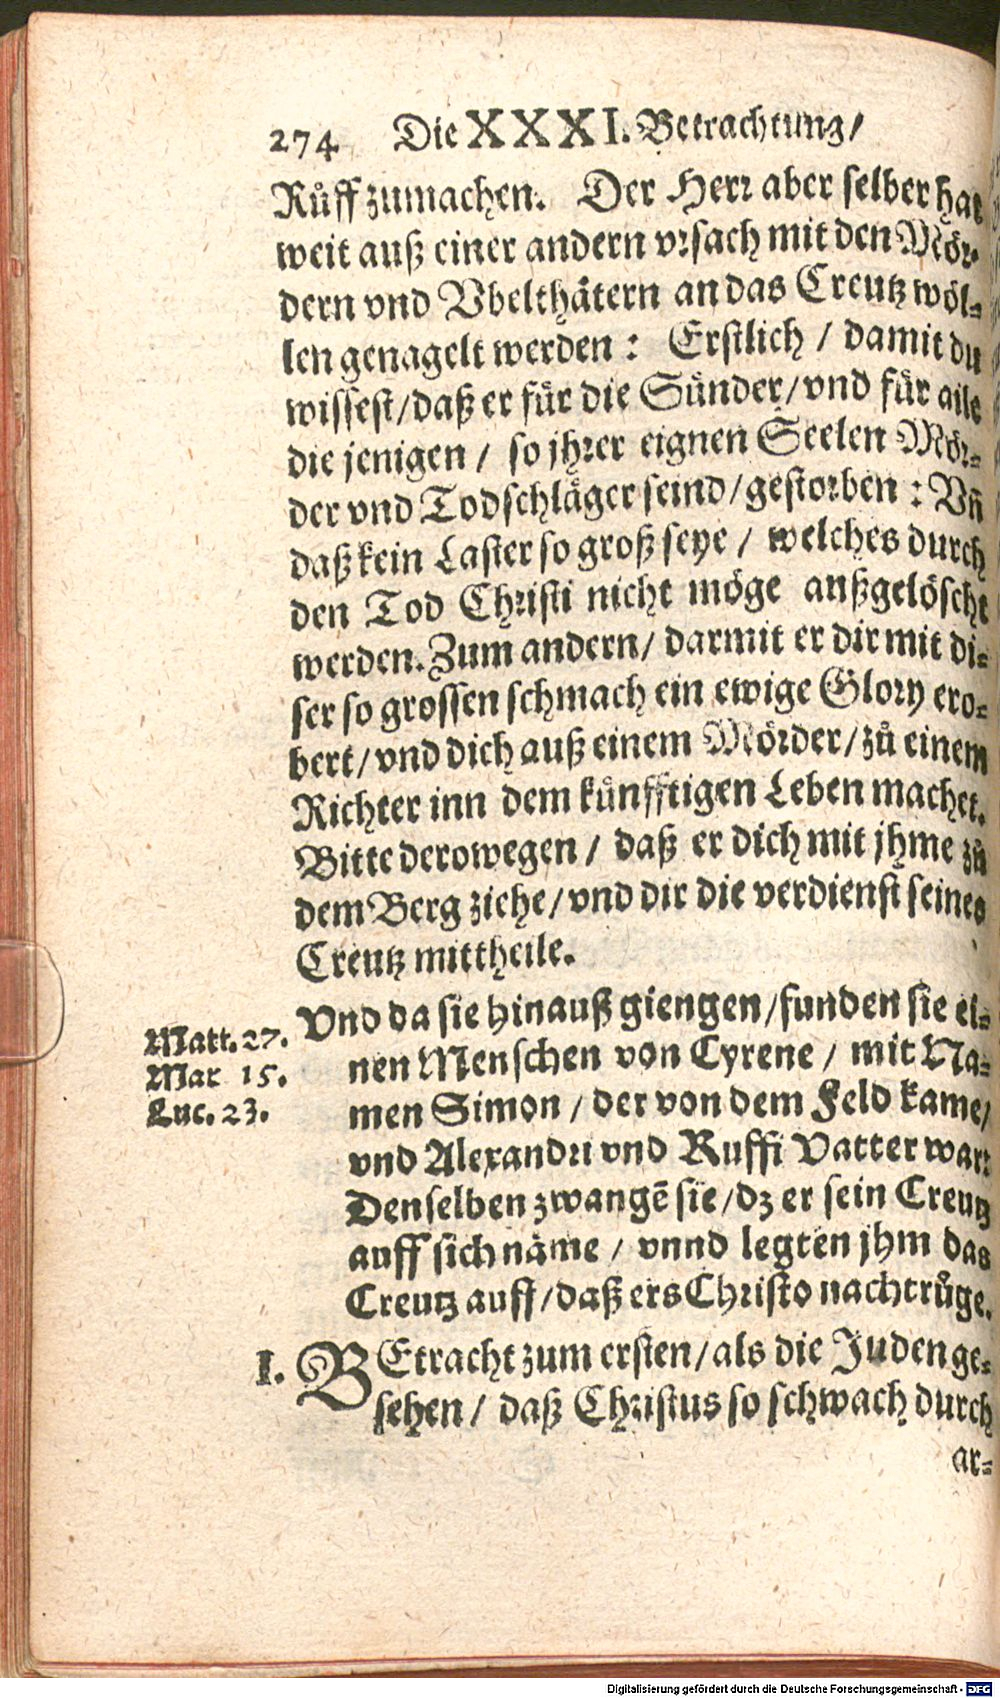 274 Die XXXI. Betrachtung/
Růff zumachen. Der Herr aber selber hat
weit auß einer andern vrsach mit den Mör-
dern vnd Vbelthätern an das Creutz wöl-
len genagelt werden: Erstlich / damit du
wissest/ daß er für die Sünder/ vnd für alle
die jenigen / so jhrer eignen Seelen Mör-
der vnd Todschläger seind/ gestorben: Vñ
daß kein Laster so groß seye / welches durch
den Tod Christi nicht möge außgelöscht
werden. Zum andern/ darmit er dir mit di-
ser so grossen schmach ein ewige Glory ero-
bert/ vnd dich auß einem Mörder/ zů einem
Richter inn dem künfftigen Leben machet.
Bitte derowegen / daß er dich mit jhme zů
dem Berg ziehe/ vnd dir die verdienst seines
Creutz mittheile.
Vnd da sie hinauß giengen/ funden sie ei-
Matt. 27.
nen Menschen von Cyrene / mit Na-
Mar 15.
men Simon / der von dem Feld kame/
Luc. 23.
vnd Alexandri vnd Ruffi Vatter war:
Denselben zwangẽ sie/ dz er sein Creutz
auff sich näme / vnnd legten jhm das
Creutz auff/ daß ers Christo nachtrůge.
I. BEtracht zum ersten/ als die Juden ge-
sehen / daß Christus so schwach durch
ar-
Digitalisierung gefördert durch die Deutsche Forschungsgemeinschaft - DFG